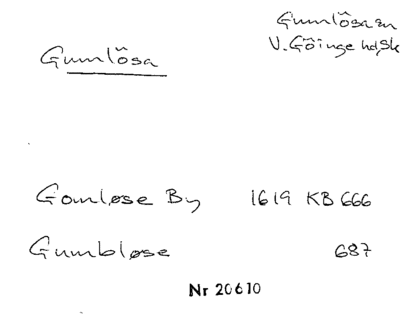 Gumlösa sn
V. Göinge hd, Sk
Gumlösa
Gomløse By 1619 KB 666
Gumbløse 687
Nr 20610